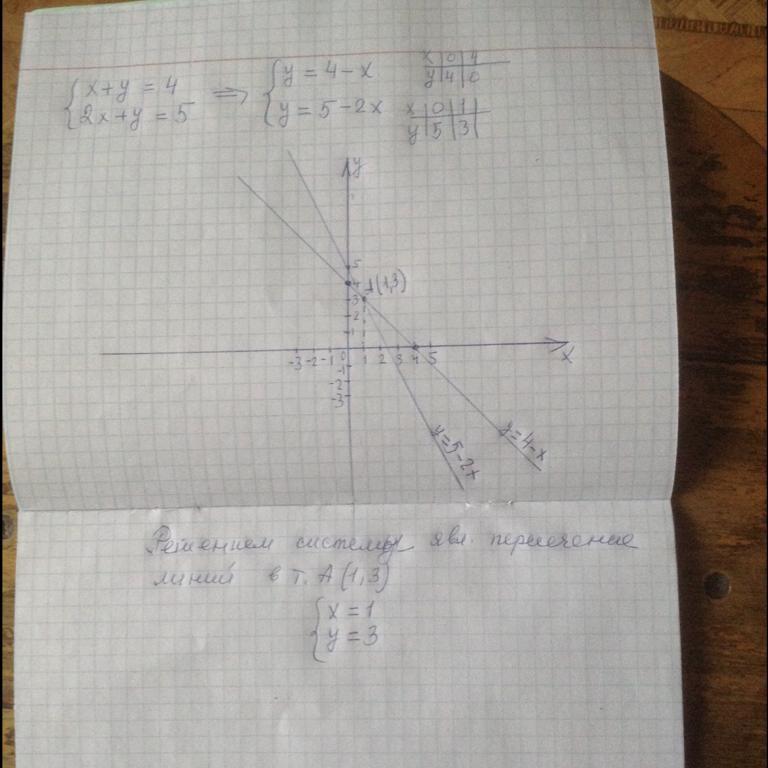 { x + y = 4 ⇒ { y = 4 - x
{ 2x + y = 5 { y = 5 - 2x
x | 0 | 4
y | 4 | 0
x | 0 | 1
y | 5 | 3
y
5
4
3
2
1
A(1,3)
-3 -2 -1 0 1 2 3 4 5
x
-1
-2
-3
y = 5 - 2x
y = 4 - x
Решением системы явл. пересечение
линий в т. A (1,3)
{ x = 1
{ y = 3